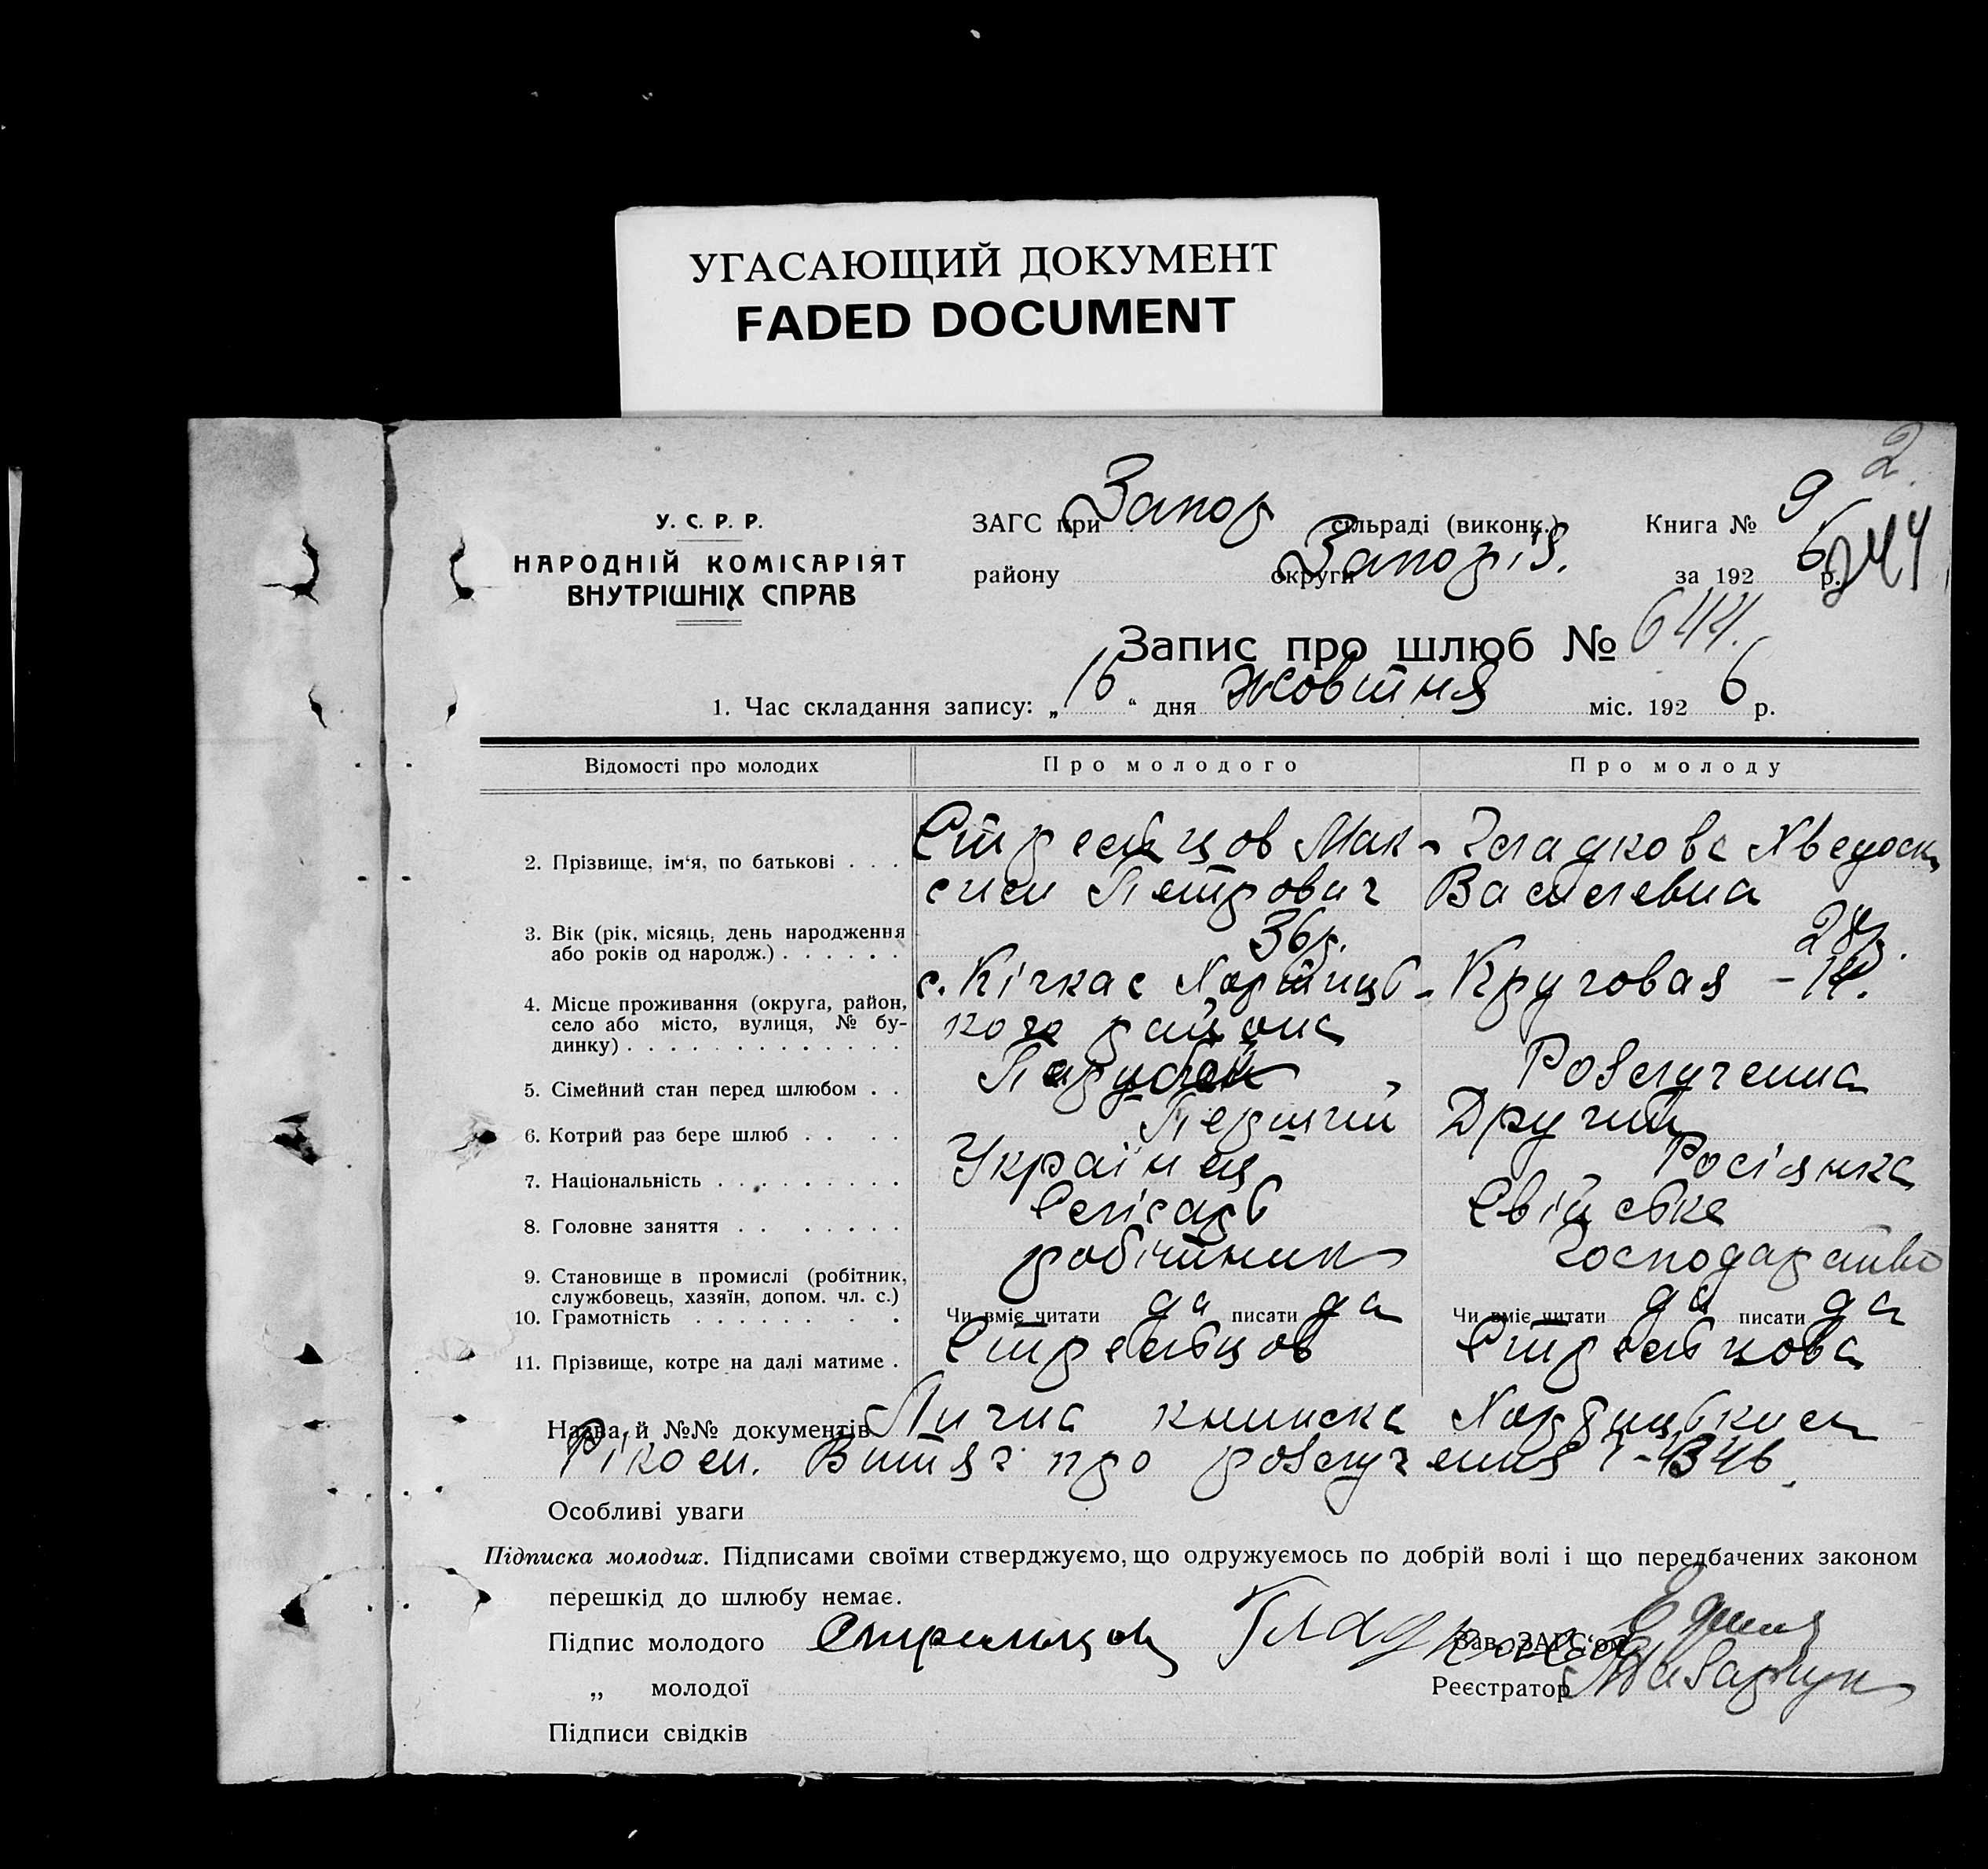 УГАСАЮЩИЙ ДОКУМЕНТ
FADED DOCUMENT
2.
У. С. Р. Р.
НАРОДНІЙ КОМІСАРІЯТ
ВНУТРІШНІХ СПРАВ
ЗАГС при Запор сільраді (виконк.) Книга № 9
району округи Запоріз. за 1926 р. 244
Запис про шлюб № 644.
1. Час складання запису: „16“ дня жовтня міс. 1926 р.
Відомості про молодих Про молодого Про молоду
2. Прізвище, ім‘я, по батькові . . . Стрельцов Мак- Гладкова Хведося
сим Петрович Василевна
3. Вік (рік, місяць, день народження 36р. 28р.
або років од народж.) . . . . . .
4. Місце проживання (округа, район, с. Кічкас Хортиць- Круговая - 14.
село або місто, вулиця, № бу- кого района
динку) . . . . . . . . . . . . .
5. Сімейний стан перед шлюбом . . Парубок Розлученна
6. Котрий раз бере шлюб . . . . Перший Другий
7. Національність . . . . . . . . . Українец Росіянка
8. Головне заняття . . . . . . . Свійське
9. Становище в промислі (робітник, робітник господарство
службовець, хазяїн, допом. чл. с.)
10. Грамотність . . . . . . . . Чи вміє читати да писати да Чи вміє читати да писати да
11. Прізвище, котре на далі матиме . Стрельцов Стрельцова
Назва й №№ документів Лична книжка Хортицьким
Ріком. Витяг про розлучення
Особливі уваги
Підписка молодих. Підписами своїми стверджуємо, що одружуємось по добрій волі і що передбачених законом
перешкід до шлюбу немає.
Підпис молодого Стрельцов Гладкова Зав. ЗАГС‘ом
„ молодої Реєстратор
Підписи свідків